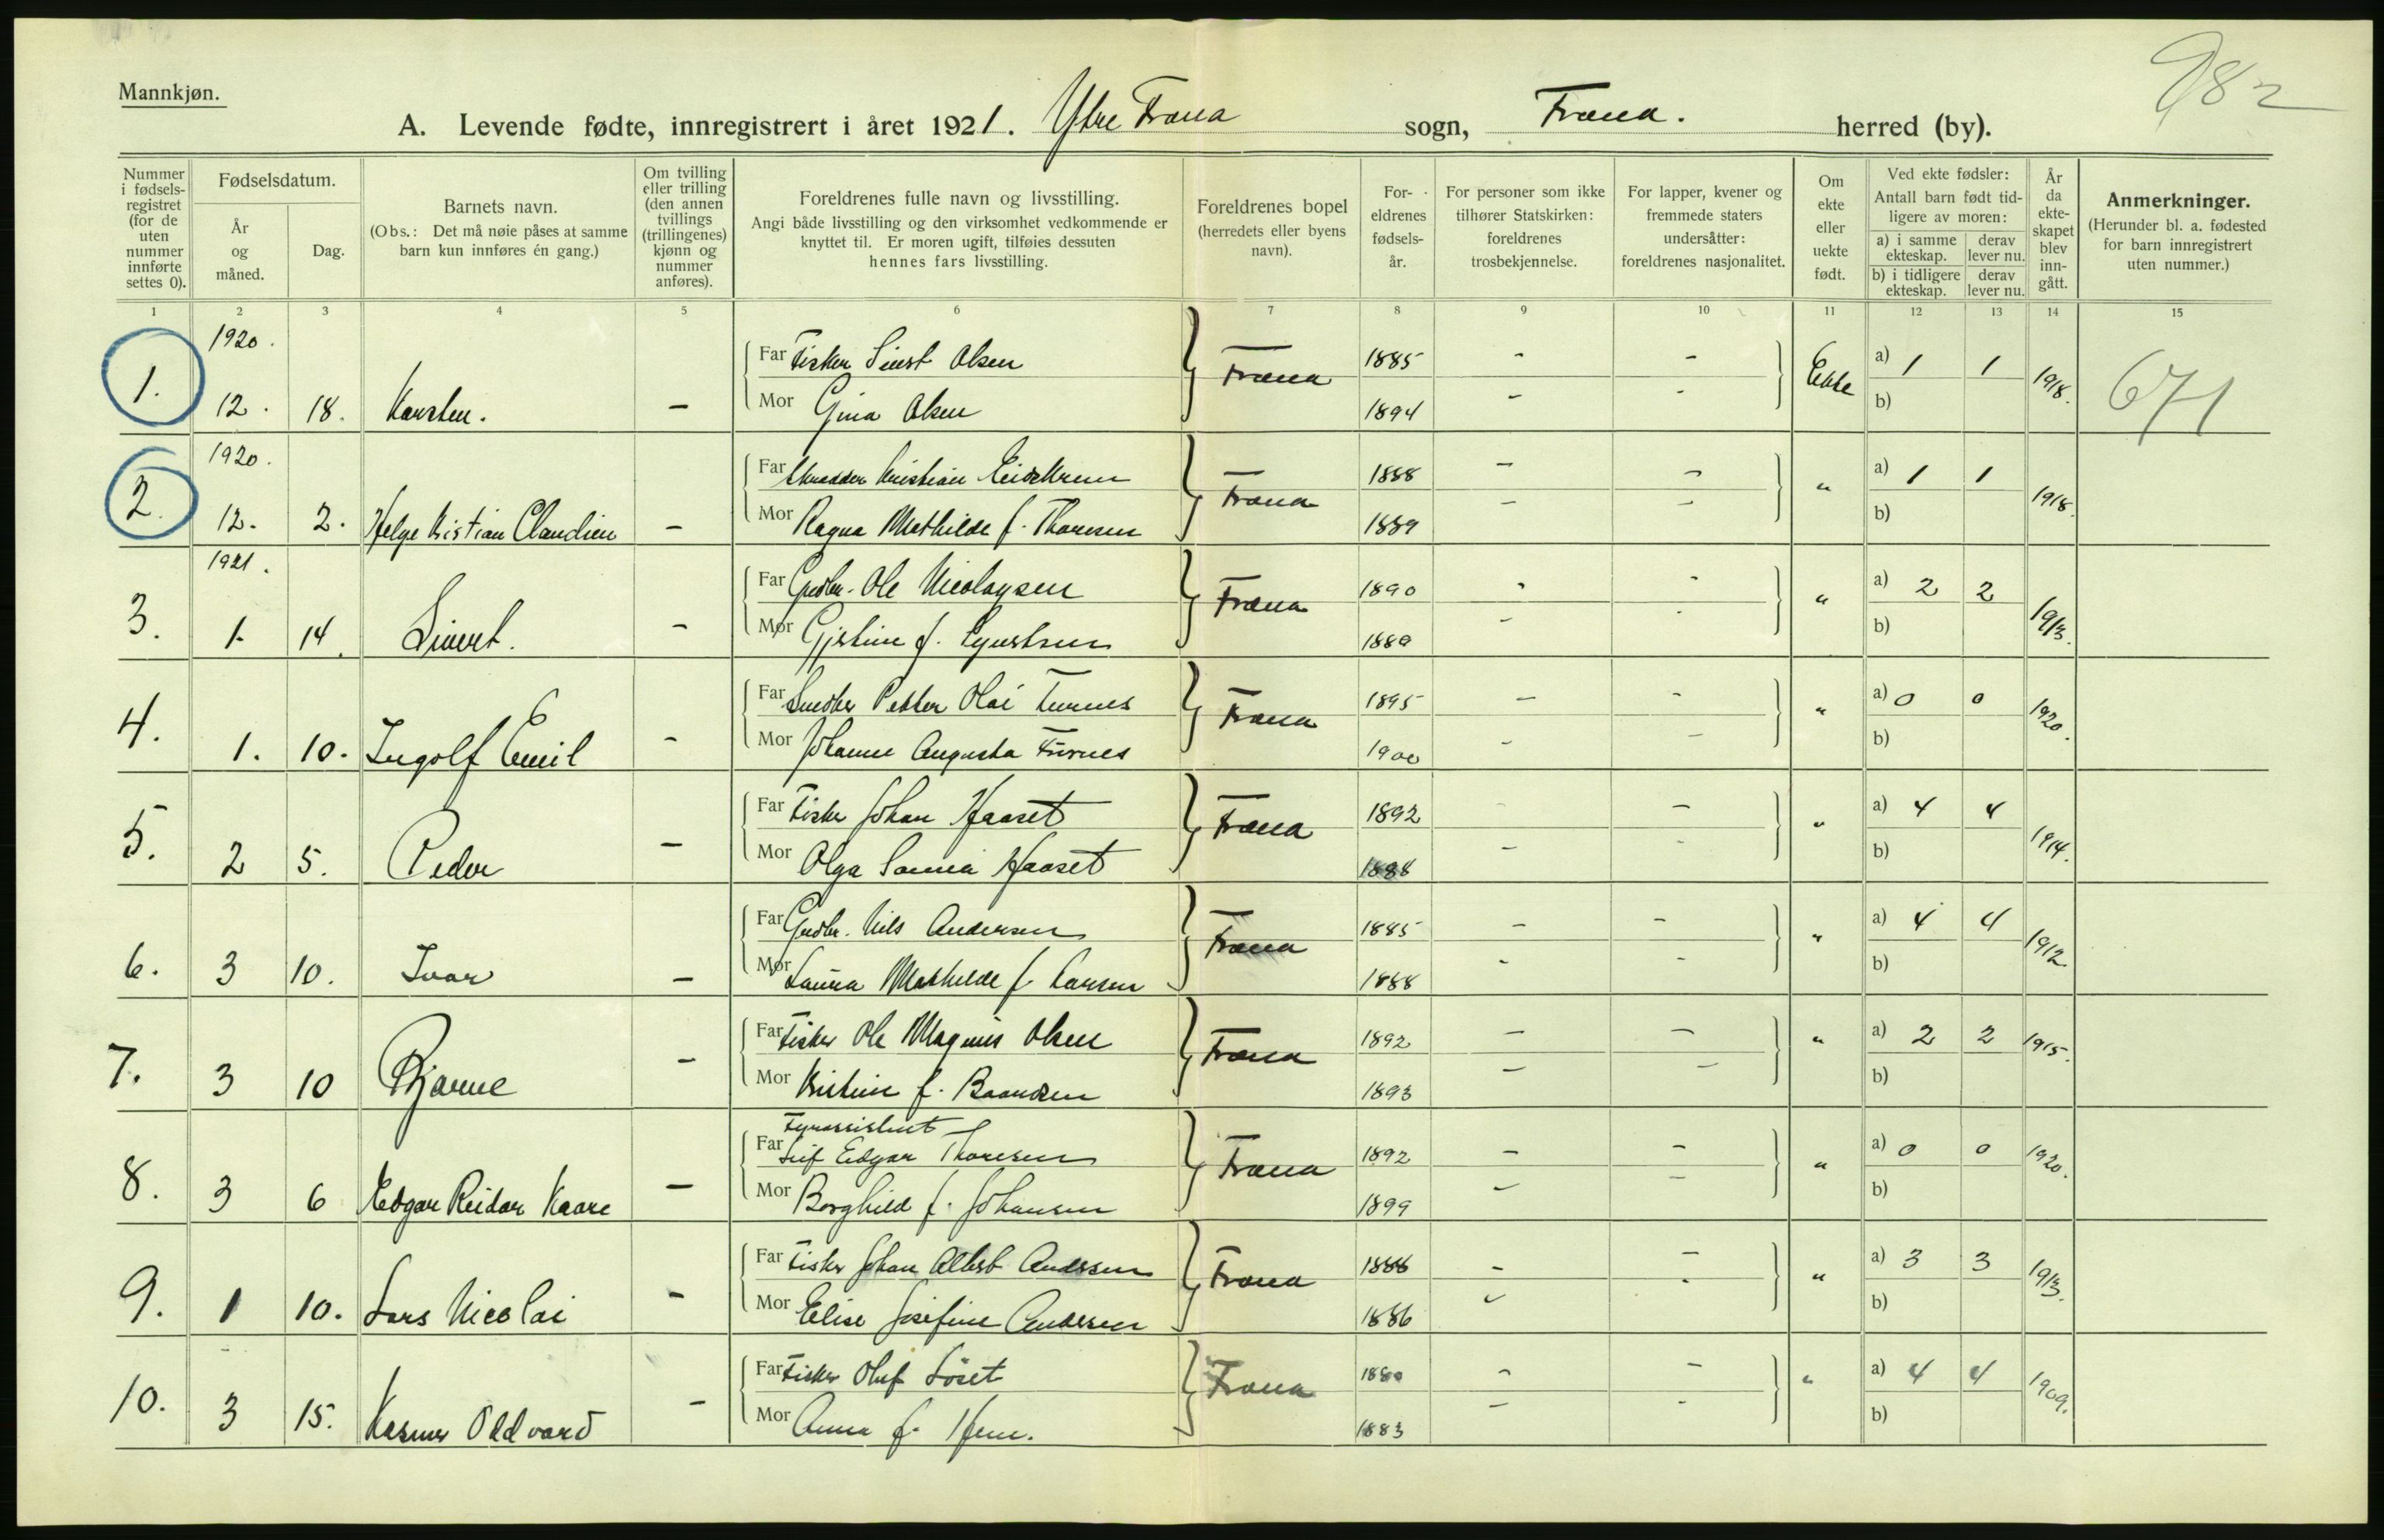 982
Mannkjøn.
A. Levende fødte, innregistrert i året 1921. Ytre Fræna sogn, Fræna. herred (by).
Nummer i fødsels-registret (for de uten nummer innførte settes 0).
Fødselsdatum.
År og måned.
Dag.
Barnets navn.
(Obs.: Det må nøie påses at samme barn kun innføres én gang.)
Om tvilling eller trilling (den annen tvillings (trillingenes) kjønn og nummer anføres).
Foreldrenes fulle navn og livsstilling.
Angi både livsstilling og den virksomhet vedkommende er knyttet til. Er moren ugift, tilføies dessuten hennes fars livsstilling.
Foreldrenes bopel (herredets eller byens navn).
For-eldrenes fødsels-år.
For personer som ikke tilhører Statskirken: foreldrenes trosbekjennelse.
For lapper, kvener og fremmede staters undersåtter: foreldrenes nasjonalitet.
Om ekte eller uekte født.
Ved ekte fødsler:
Antall barn født tid-ligere av moren:
a) i samme ekteskap. derav lever nu.
b) i tidligere ekteskap. derav lever nu.
År da ekte-skapet blev inn-gått.
Anmerkninger.
(Herunder bl. a. fødested for barn innregistrert uten nummer.)
1 2 3 4 5 6 7 8 9 10 11 12 13 14 15
1920.
1. 12. 18. Karsten. -
Far Fisker Sivert Olsen Fræna 1885 - - Ekte a) 1 1 1918. 671
Mor Gina Olsen 1894 - - b)
1920.
2. 12. 2. Helge Kristian Claudien -
Far Skredder Kristian Eidskrem Fræna 1888 - - " a) 1 1 1918.
Mor Ragna Mathilde f. Thoresen 1889 - - b)
1921.
3. 1. 14. Sivert. -
Far Grdbr. Ole Nicolaysen Fræna 1890 - - " a) 2 2 1913.
Mor Gjertine f. 1889 - - b)
4. 1. 10. Ingolf Emil -
Far Petter Olai Furnes Fræna 1895 - - " a) 0 0 1920.
Mor Johanne Augusta Furnes 1900 - - b)
5. 2 5. Peder -
Far Fisker Johan Haaset Fræna 1892 - - " a) 4 4 1914.
Mor Olga Haaset 1888 - - b)
6. 3 10. Ivar -
Far Grdbr. Nils Andersen Fræna 1885 - - " a) 4 4 1912.
Mor Laura Mathilde f. Larsen 1888 - - b)
7. 3 10 Bjarne -
Far Fisker Ole Magnus Olsen Fræna 1892 - - " a) 2 2 1915.
Mor Kristine f. 1893 - - b)
Fyrassistent
8. 3 6 Edgar Reidar Kaare -
Far Leif Edgar Thoresen Fræna 1892 - - " a) 0 0 1920.
Mor Borghild f. Johansen 1899 - - b)
9. 1 10. Lars Nicolai -
Far Fisker Johan Albert Andersen Fræna 1886 - - " a) 3 3 1913.
Mor Elise Josefine Andersen 1886 b)
10. 3 15. Oddvard -
Far Fisker Oluf Löset Fræna 1880 - - " a) 4 4 1909.
Mor Anna f. Hem. 1883 - - b)